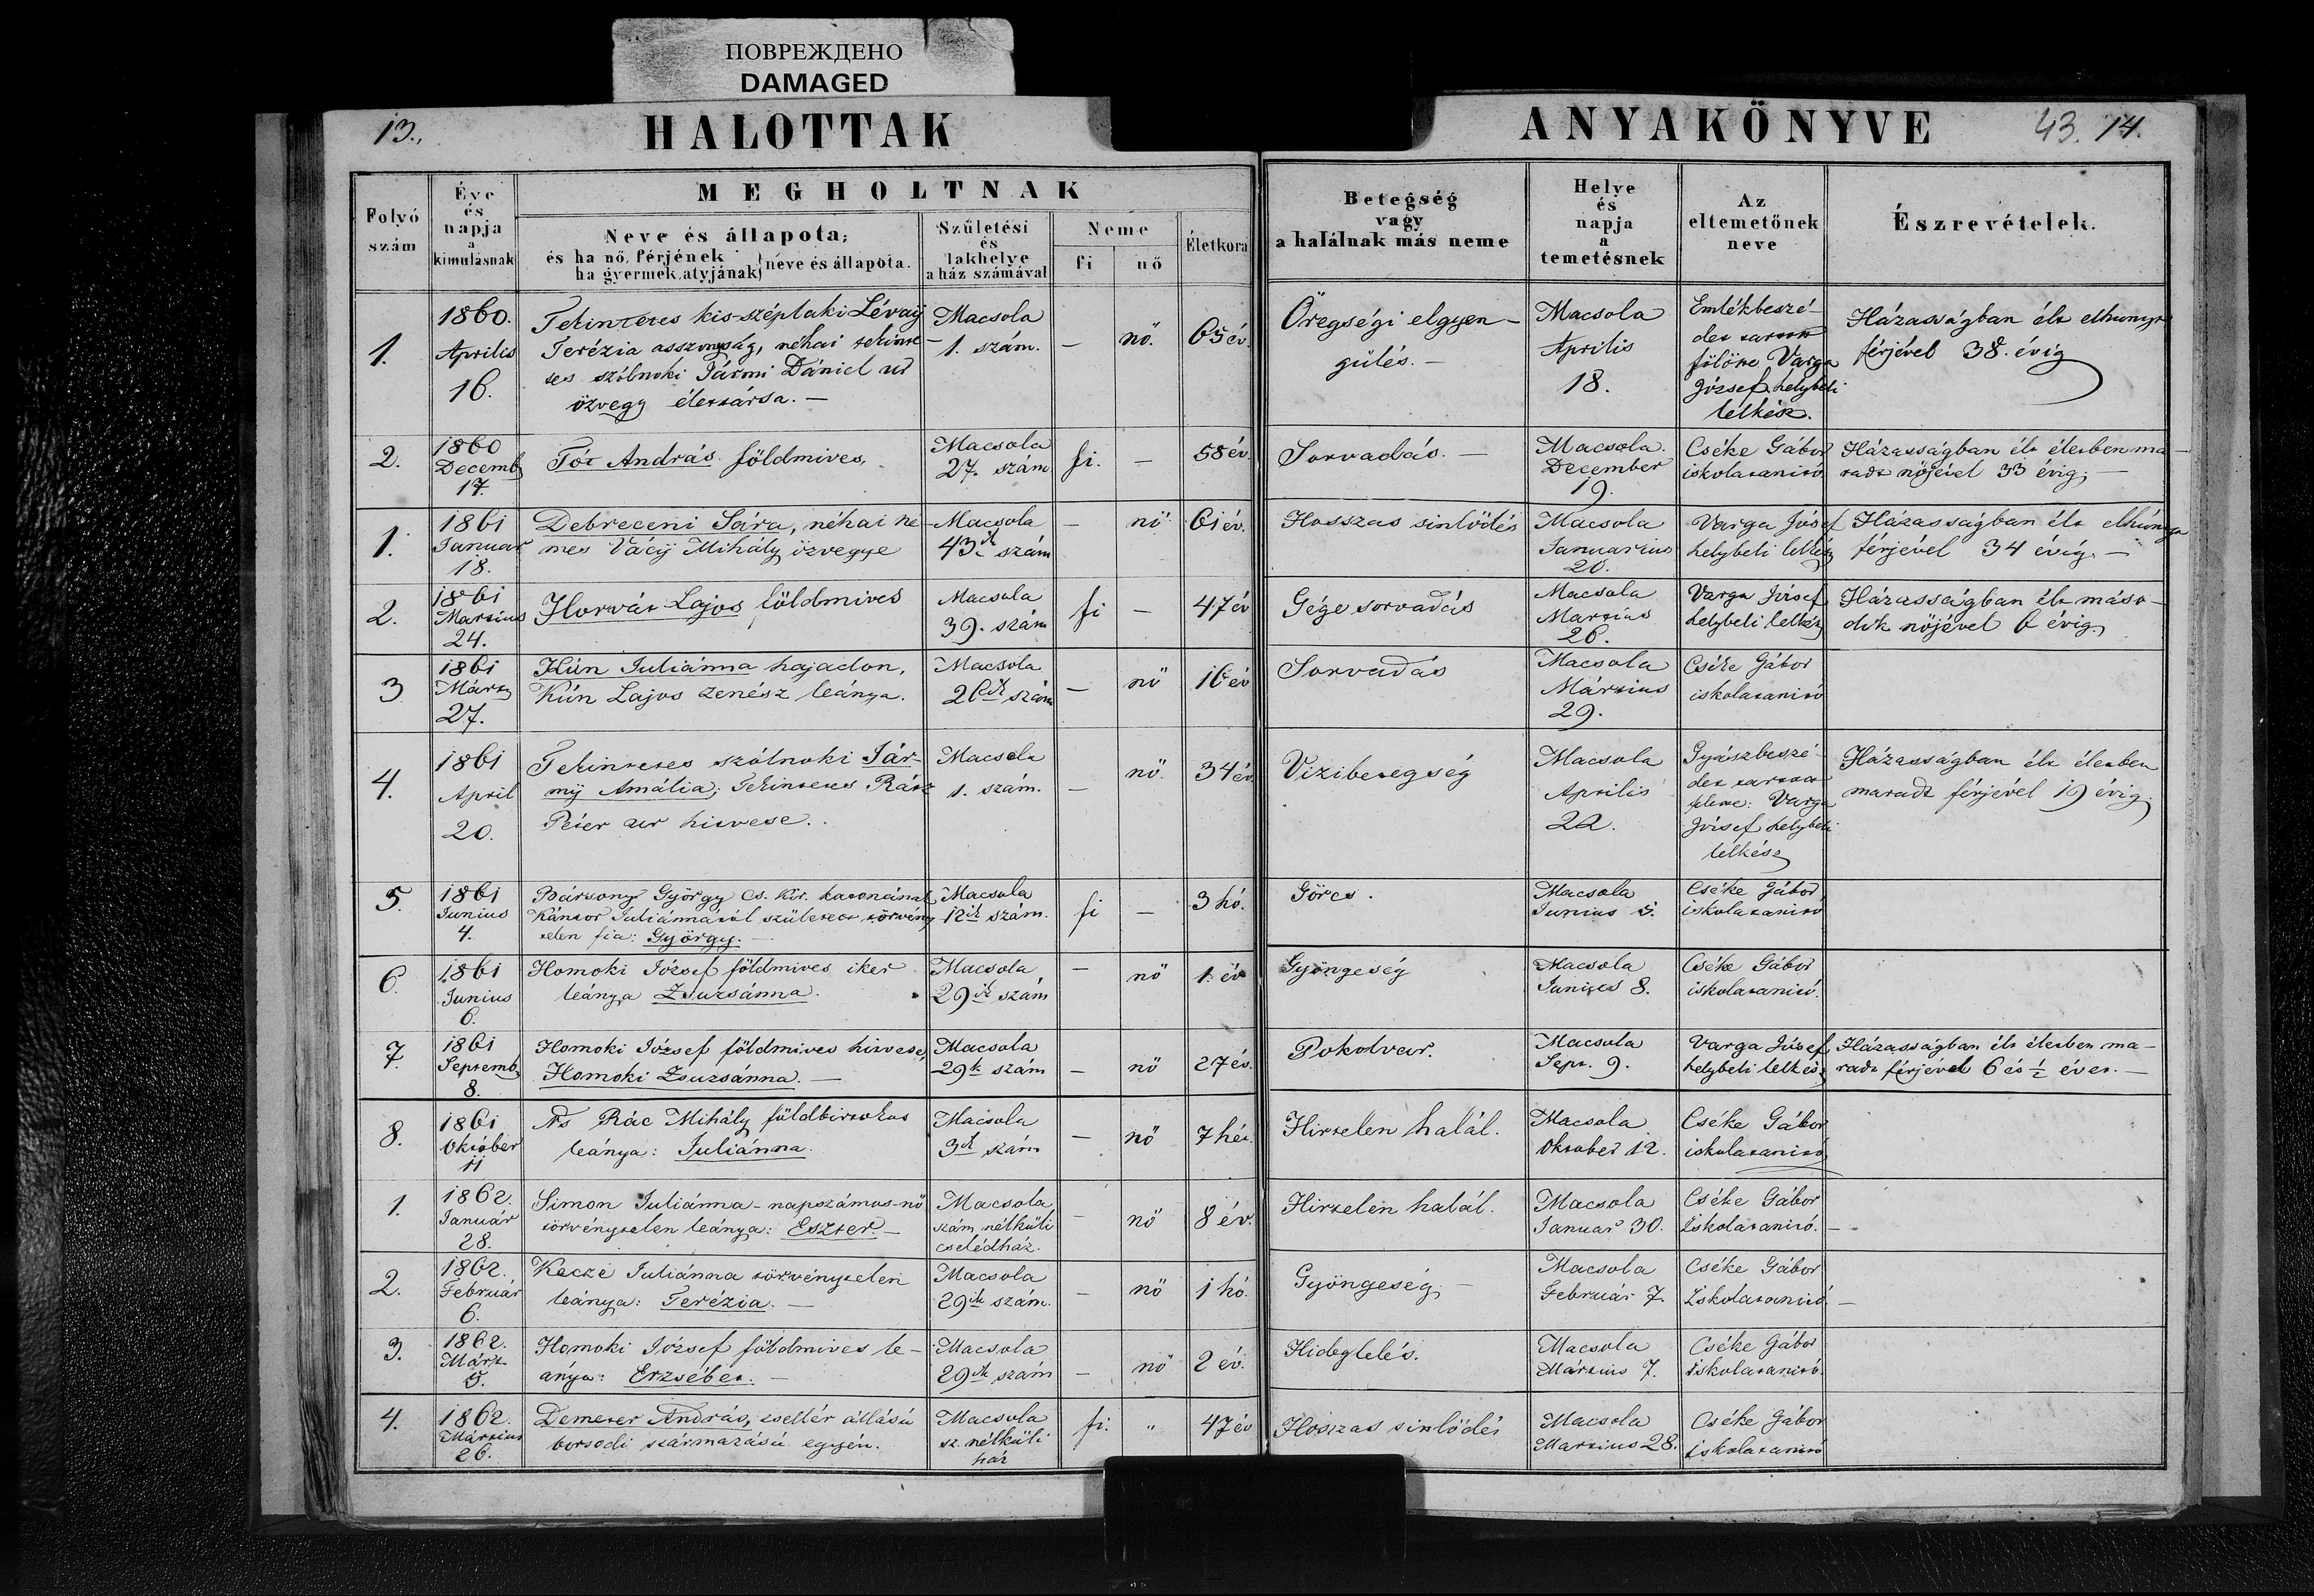 ПОВРЕЖДЕНО
DAMAGED
13.,
HALOTTAK
ANYAKÖNYVE
43. 14.
Folyó
szám
Éve
és
napja
a
kimulásnak
MEGHOLTNAK
Neve és állapota;
és ha nő, férjének
ha gyermek, atyjának
neve és állapota.
Születési
és
lakhelye
a ház számával
Neme
fi
nő
Életkora
Betegség
vagy
a halálnak más neme
Helye
és
napja
a
temetésnek
Az
eltemetőnek
neve
Észrevételek.
1.
1860.
Aprilis
16.
Tekintetes kis-széplaki Lévaÿ
Terézia asszonyság, néhai tekinte-
tes szólnoki Jármi Dániel úr
özvegy élettársa. —
Macsola
1. szám.
—
nő.
65 év
Öregségi elgyen-
gülés. —
Macsola
Aprilis
18.
Emlékbeszé-
det tartott
fölötte Varga
József helybeli
lelkész.
Házasságban élt elhunyt
férjével 38. évig
2.
1860
Decemb
17.
Tót András földmives,
Macsola
27. szám
fi.
—
58 év.
Sorvadás. —
Macsola.
December
19.
Cséke Gábor
iskolatanitó.
Házasságban élt életben ma-
radt nöjével 33 évig. —
1.
1861
Januar
18.
Debreceni Sára, néhai ne-
mes Vácÿ Mihály özvegye
Macsola
43ik szám
—
nö
61 év.
Hosszas sinlödés
Macsola
Januarius
20.
Varga József
helybeli lelkész
Házasságban élt elhúnyt
férjével 34 évig. —
2.
1861
Martius
24.
Horvát Lajos földmives
Macsola
39. szám
fi
—
47 év
Gége sorvadás
Macsola
Martius
26.
Varga József
helybeli lelkész
Házasságban élt máso-
dik nöjével 6 évig.
3
1861
Márt
27.
Kún Juliánna hajadon,
Kún Lajos zenész leánya.
Macsola
26ik szám
—
nö
16 év
Sorvadás
Macsola
Mártius
29.
Cséke Gábor
iskolatanitó
4.
1861
April
20.
Tekintetes szólnoki Jár-
mÿ Amália; Tekintetes Rátz
Péter úr hitvese.
Macsola
1. szám.
—
nö.
34 év
Vizibetegség
Macsola
Aprilis
22.
Gyászbeszé-
det tartott
felette: Varga
József helybeli
lelkész
Házasságban élt életben
maradt férjével 19 évig.
5.
1861
Junius
4.
Bársony György cs. kir. katonának
Kántor Juliánnától született törvény
telen fia: György. —
Macsola
12ik szám.
fi
—
3 hó.
Görcs.
Macsola
Junius 5.
Cséke Gábor
iskolatanitó
6.
1861
Junius
6.
Homoki József földmives iker
leánya Zsuzsánna.
Macsola
29ik szám
—
nö
1 év
Gyöngeség
Macsola
Junius 8.
Cséke Gábor
iskolatanitó.
7.
1861
Septemb
8.
Homoki József földmives hitvese,
Homoki Zsuzsánna. —
Macsola
29ik szám
—
nö
27 év
Pokolvar.
Macsola
Sept. 9.
Varga József
helybeli lelkész
Házasságban élt életben ma-
radt férjével 6 és ½ évet. —
8.
1861
Október
11
Ns Rác Mihály földbirtokos
leánya: Juliánna.
Macsola
3ik szám
—
nö
7 hét.
Hirtelen halál.
Macsola
Oktober 12.
Cséke Gábor
iskolatanitó
1.
1862.
Január
28.
Simon Juliánna-napszámos-nö
törvénytelen leánya: Eszter. —
Macsola
szám nélküli
cselédház.
—
nö
8 év.
Hirtelen halál.
Macsola
Januar 30.
Cséke Gábor
Iskolatanitó. —
2.
1862.
Február
6.
Kecze Juliánna törvénytelen
leánya: Terézia. —
Macsola
29ik szám.
—
nö
1 hó.
Gyöngeség —
Macsola
Február 7.
Cséke Gábor
Iskolatanitó. —
3.
1862.
Márt
5.
Homoki József földmives le-
ánya: Erzsébet. —
Macsola
29ik szám
—
nö
2 év.
Hideglelés.
Macsola
Mártius 7.
Cséke Gábor
iskolatanitó.
4.
1862.
Mártius
26.
Demeter András, zsellér állású
borsodi származású egyén.
Macsola
sz. nélküli
ház
fi.
"
47 év
Hosszas sinlödés
Macsola
Martius 28.
Cséke Gábor
iskolatanitó